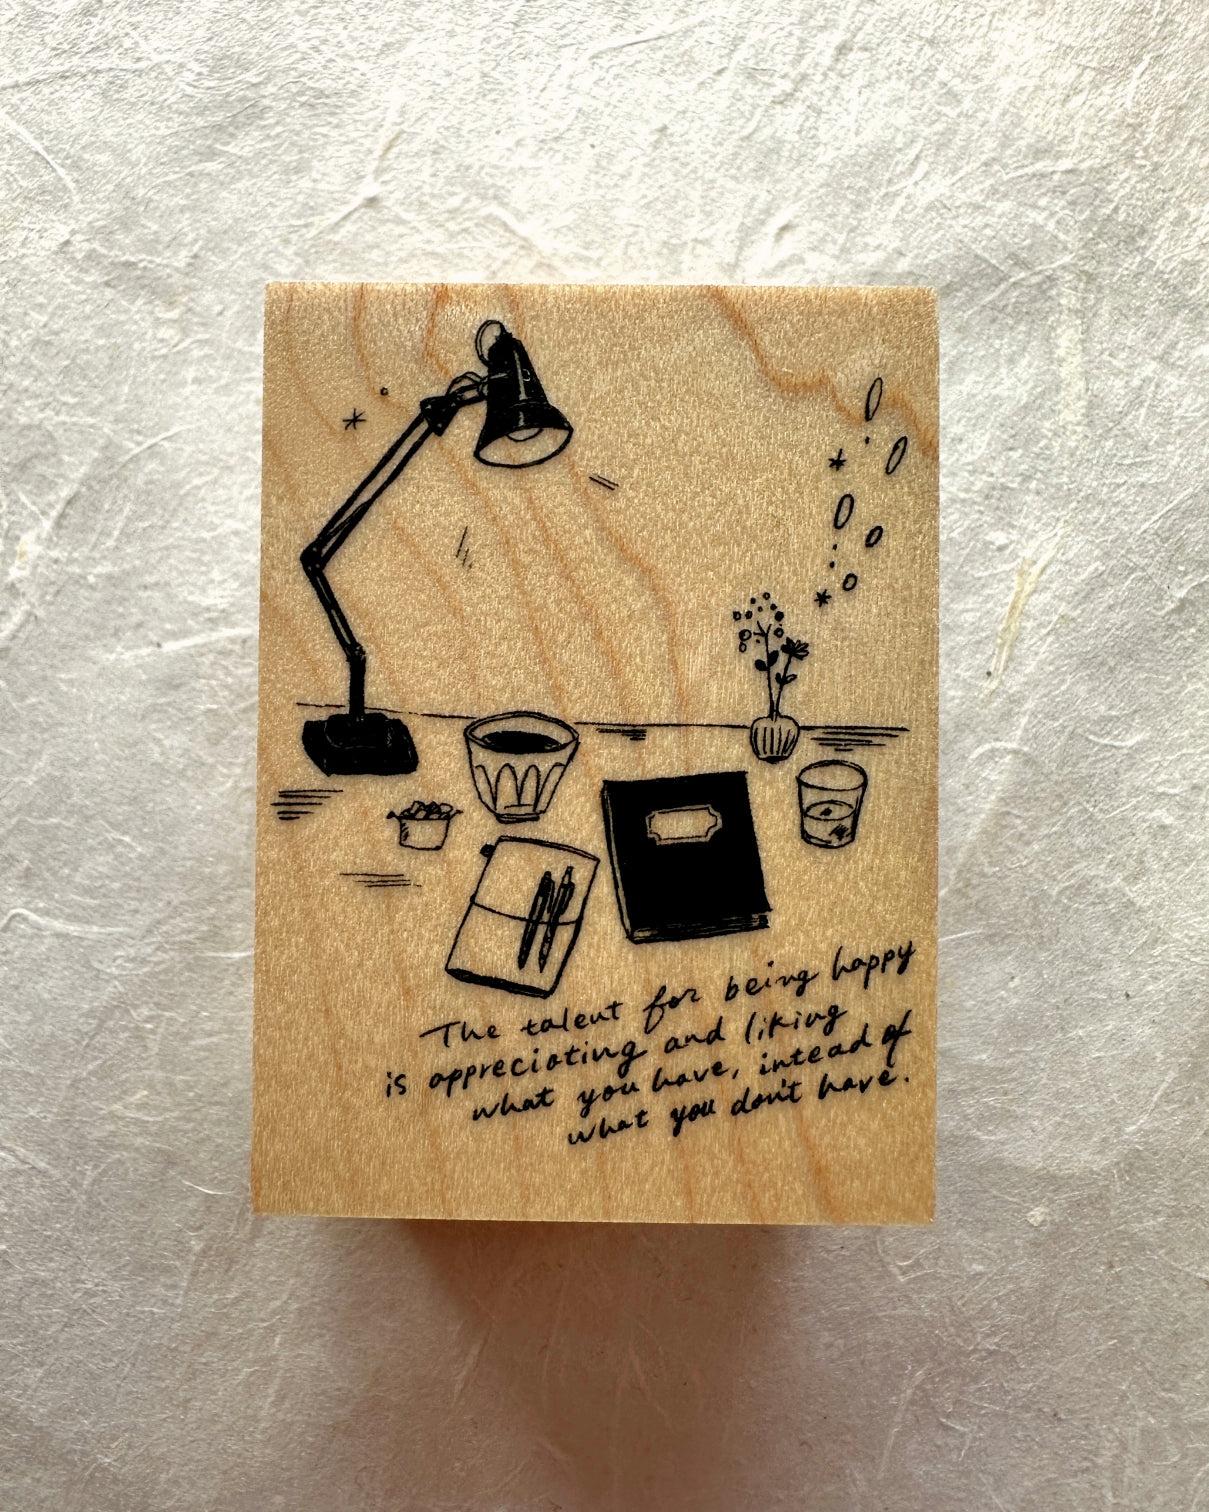 The talent for being happy
is appreciating and liking
what you have, intead of
what you don't have.